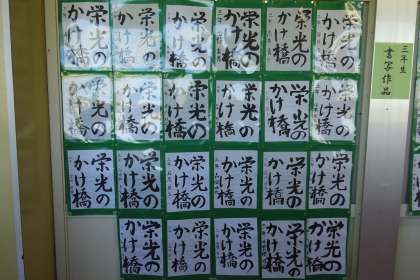 三年生
書写作品
栄光の
かけ橋
栄光の
かけ橋
栄光の
かけ橋
栄光の
かけ橋
栄光の
かけ橋
栄光の
かけ橋
栄光の
かけ橋
栄光の
かけ橋
栄光の
かけ橋
栄光の
かけ橋
栄光の
かけ橋
栄光の
かけ橋
栄光の
かけ橋
栄光の
かけ橋
栄光の
かけ橋
栄光の
かけ橋
栄光の
かけ橋
栄光の
かけ橋
栄光の
かけ橋
栄光の
かけ橋
栄光の
かけ橋
栄光の
かけ橋
栄光の
かけ橋